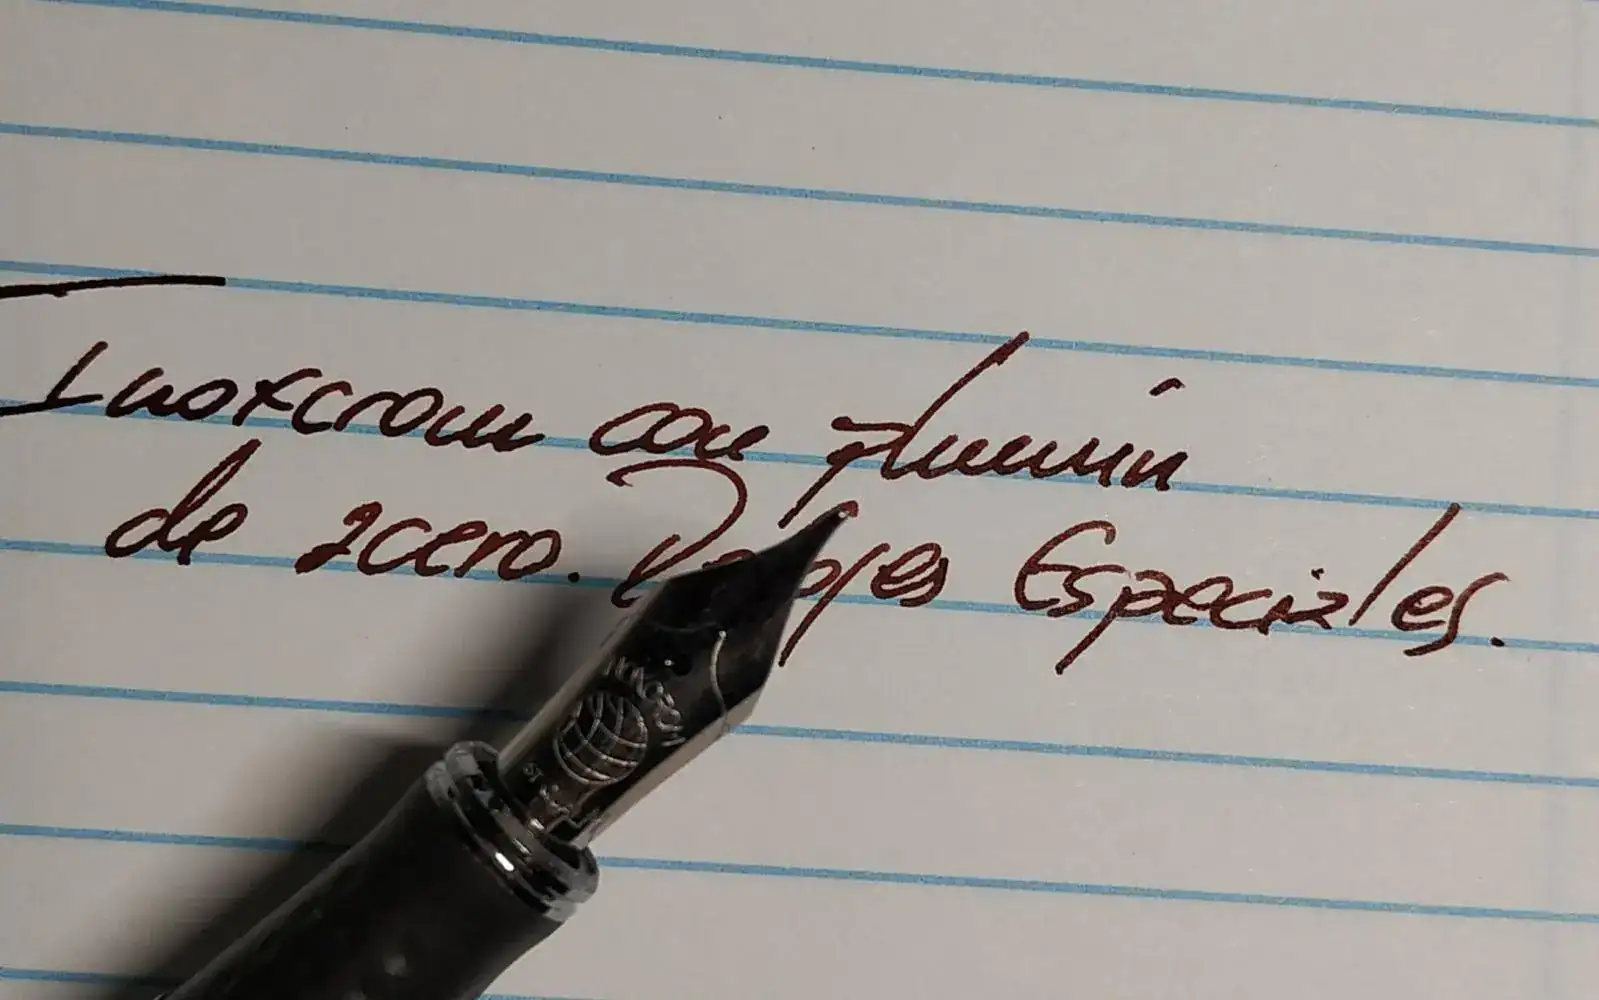 Inoxcrom con plumín
de acero. Relojes Especiales.